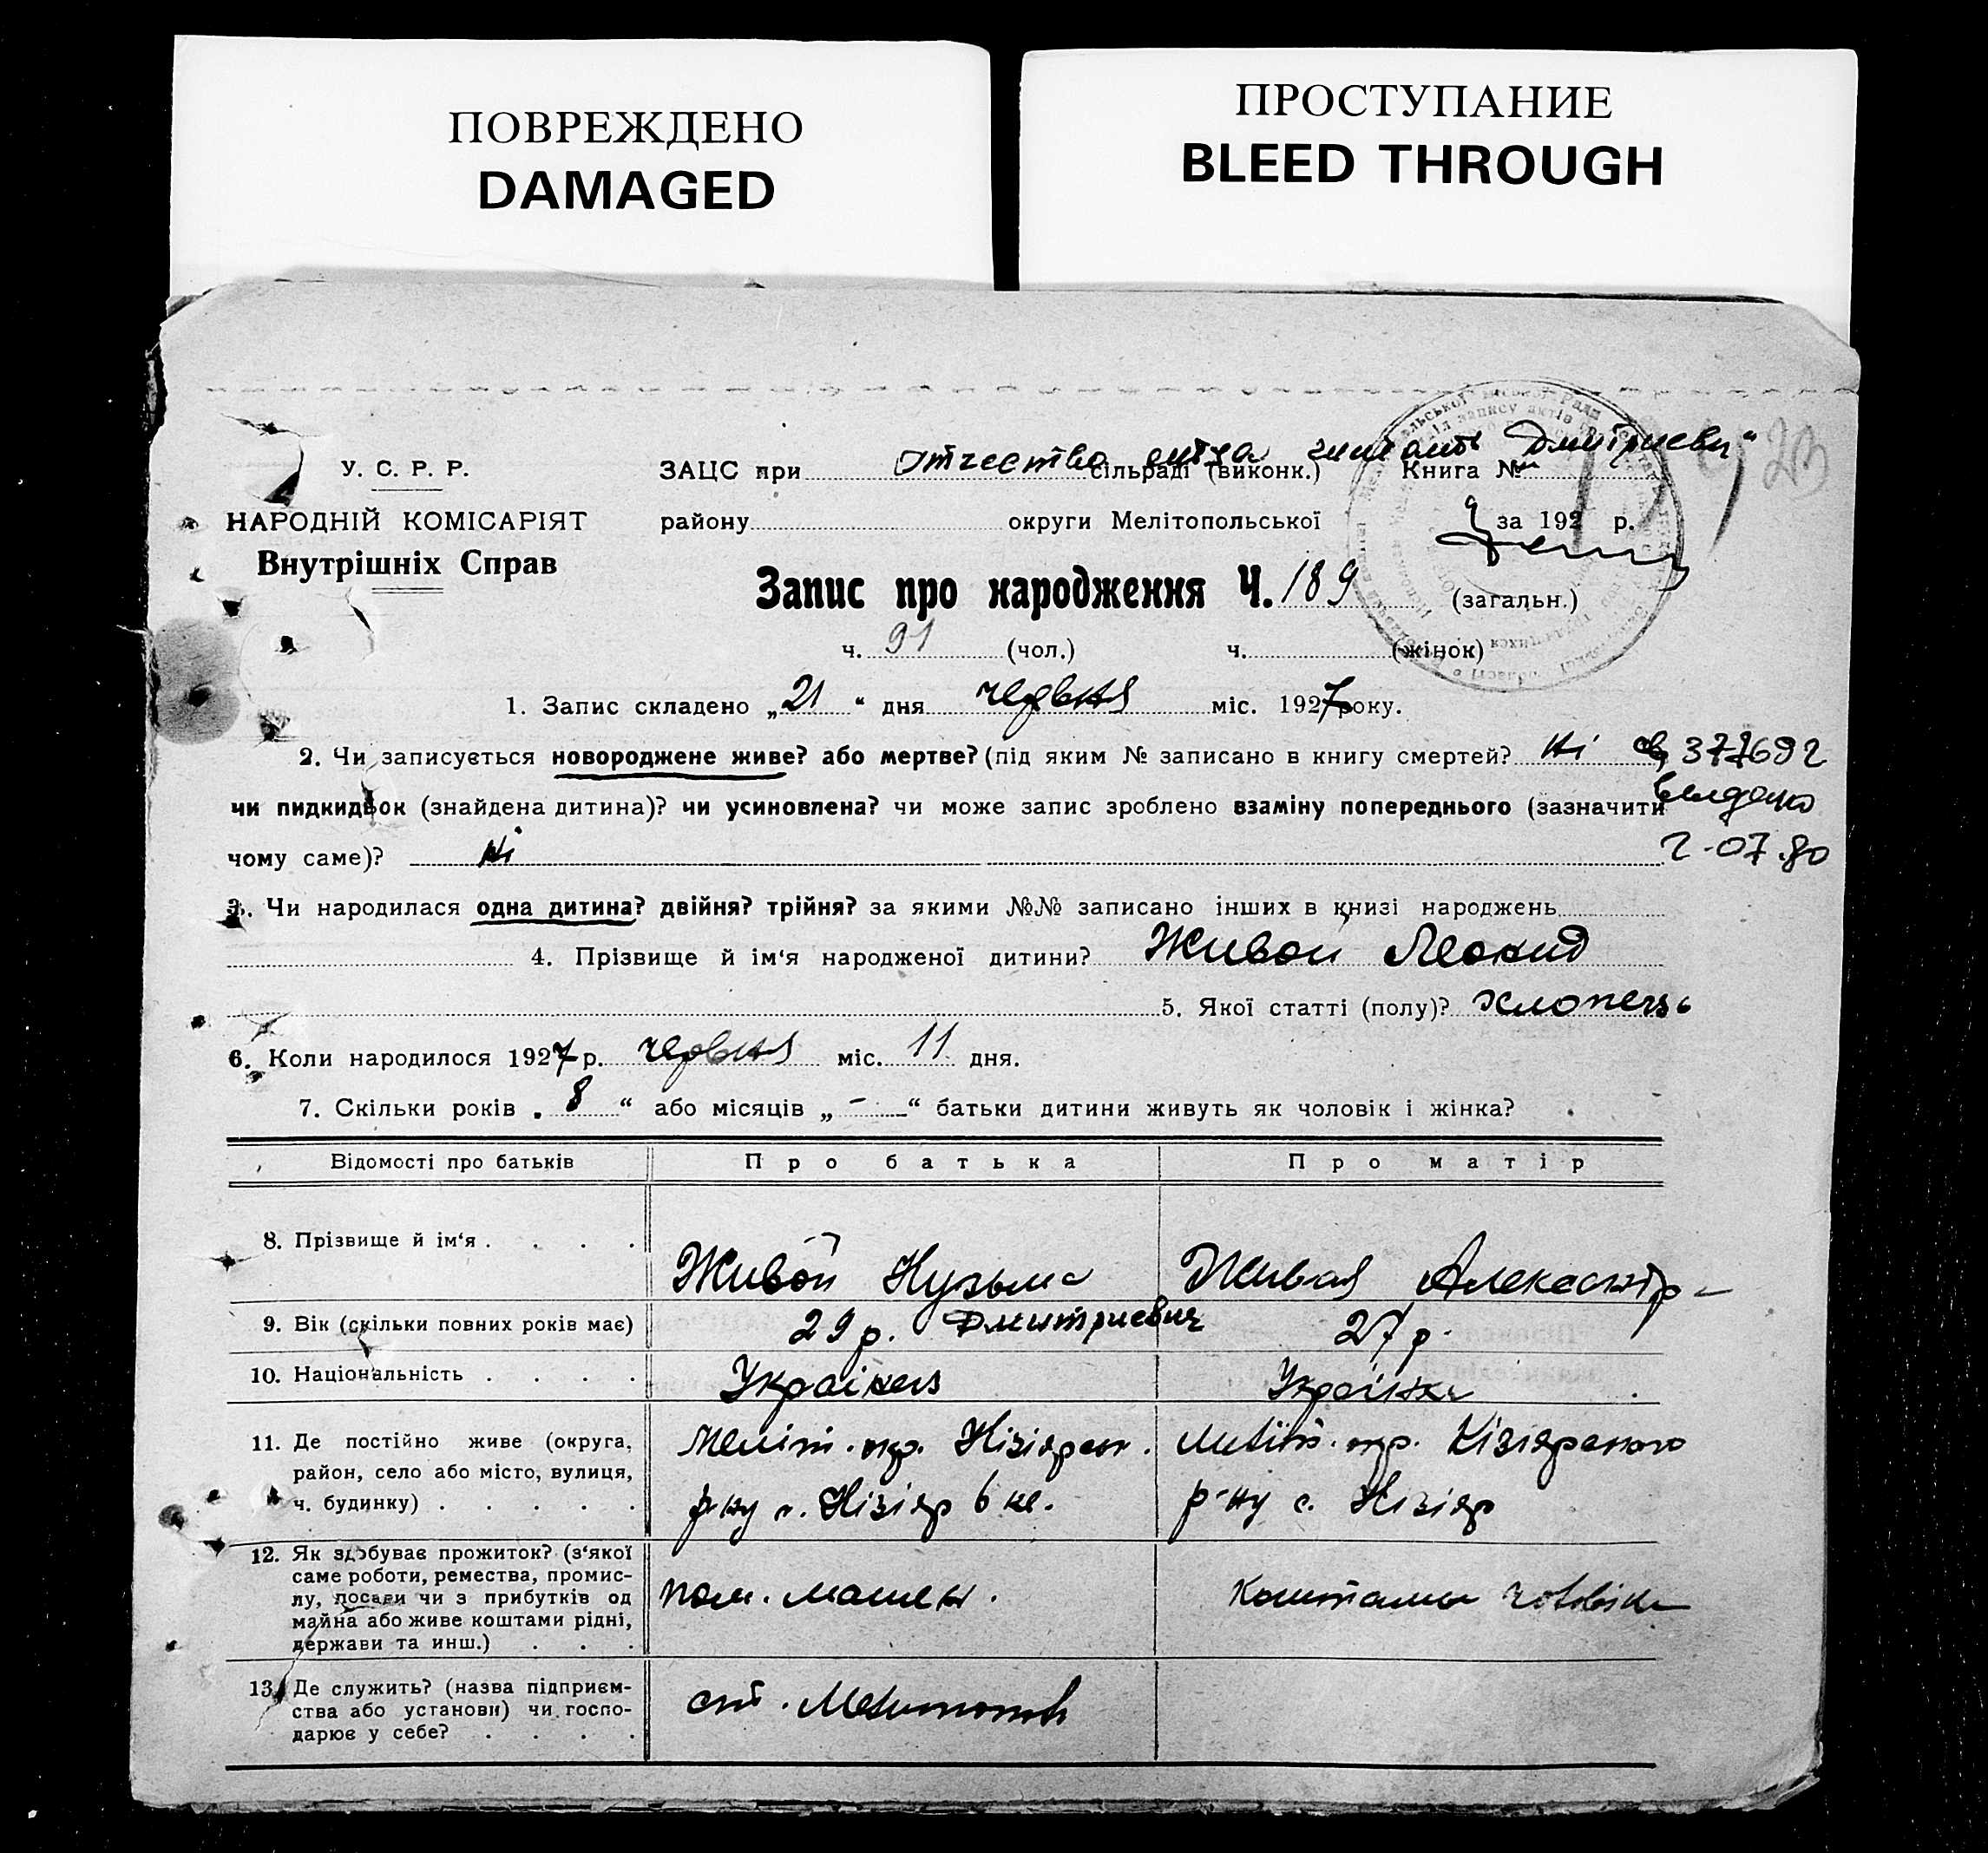 ПОВРЕЖДЕНО
DAMAGED
ПРОСТУПАНИЕ
BLEED THROUGH
У. С. Р. Р.
НАРОДНІЙ КОМІСАРІЯТ
Внутрішніх Справ
отчество отца читать „Дмитриевич“
ЗАЦС при сільраді (виконк.) Книга №
району округи Мелітопольської за 192 р.
Запис про народження Ч. 189 (загальн.)
ч. 91 (чол.) ч. (жінок)
1. Запис складено „21“ дня червня міс. 1927 року.
2. Чи записується новороджене живе? або мертве? (під яким № записано в книгу смертей? Ні
чи пидкидьок (знайдена дитина)? чи усиновлена? чи може запис зроблено взаміну попереднього (зазначити
чому саме)? Ні
2-07.80
3. Чи народилася одна дитина? двійня? трійня? за якими №№ записано інших в книзі народжень
4. Прізвище й ім‘я народженої дитини? Живой Леонид
5. Якої статті (полу)? Хлопець
6. Коли народилося 1927 р. червня міс. 11 дня.
7. Скільки років „8“ або місяців „-“ батьки дитини живуть як чоловік і жінка?
Відомості про батьків Про батька Про матір
8. Прізвище й ім‘я . . . . Живой Кузьма Живая Александр
Дмитриевич
9. Вік (скільки повних років має) 29 р. 27 р.
10. Національність . . . . Українець Українка
11. Де постійно живе (округа, район, село або місто, вулиця, ч. будинку) . . . . .
Меліт. окр. Кізіярск.
р-ну с. Кізіяр
Меліт. окр. Кізіярского
р-ну с. Кізіяр
12. Як здобуває прожиток? (з‘якої
саме роботи, ремества, промис-
лу, посади чи з прибутків од
майна або живе коштами рідні,
держави та инш.) . . .
пом. машин.
коштами чоловіка
13. Де служить? (назва підприєм-
ства або установи) чи госпо-
дарює у себе? . . . .
ст. Мелитополь